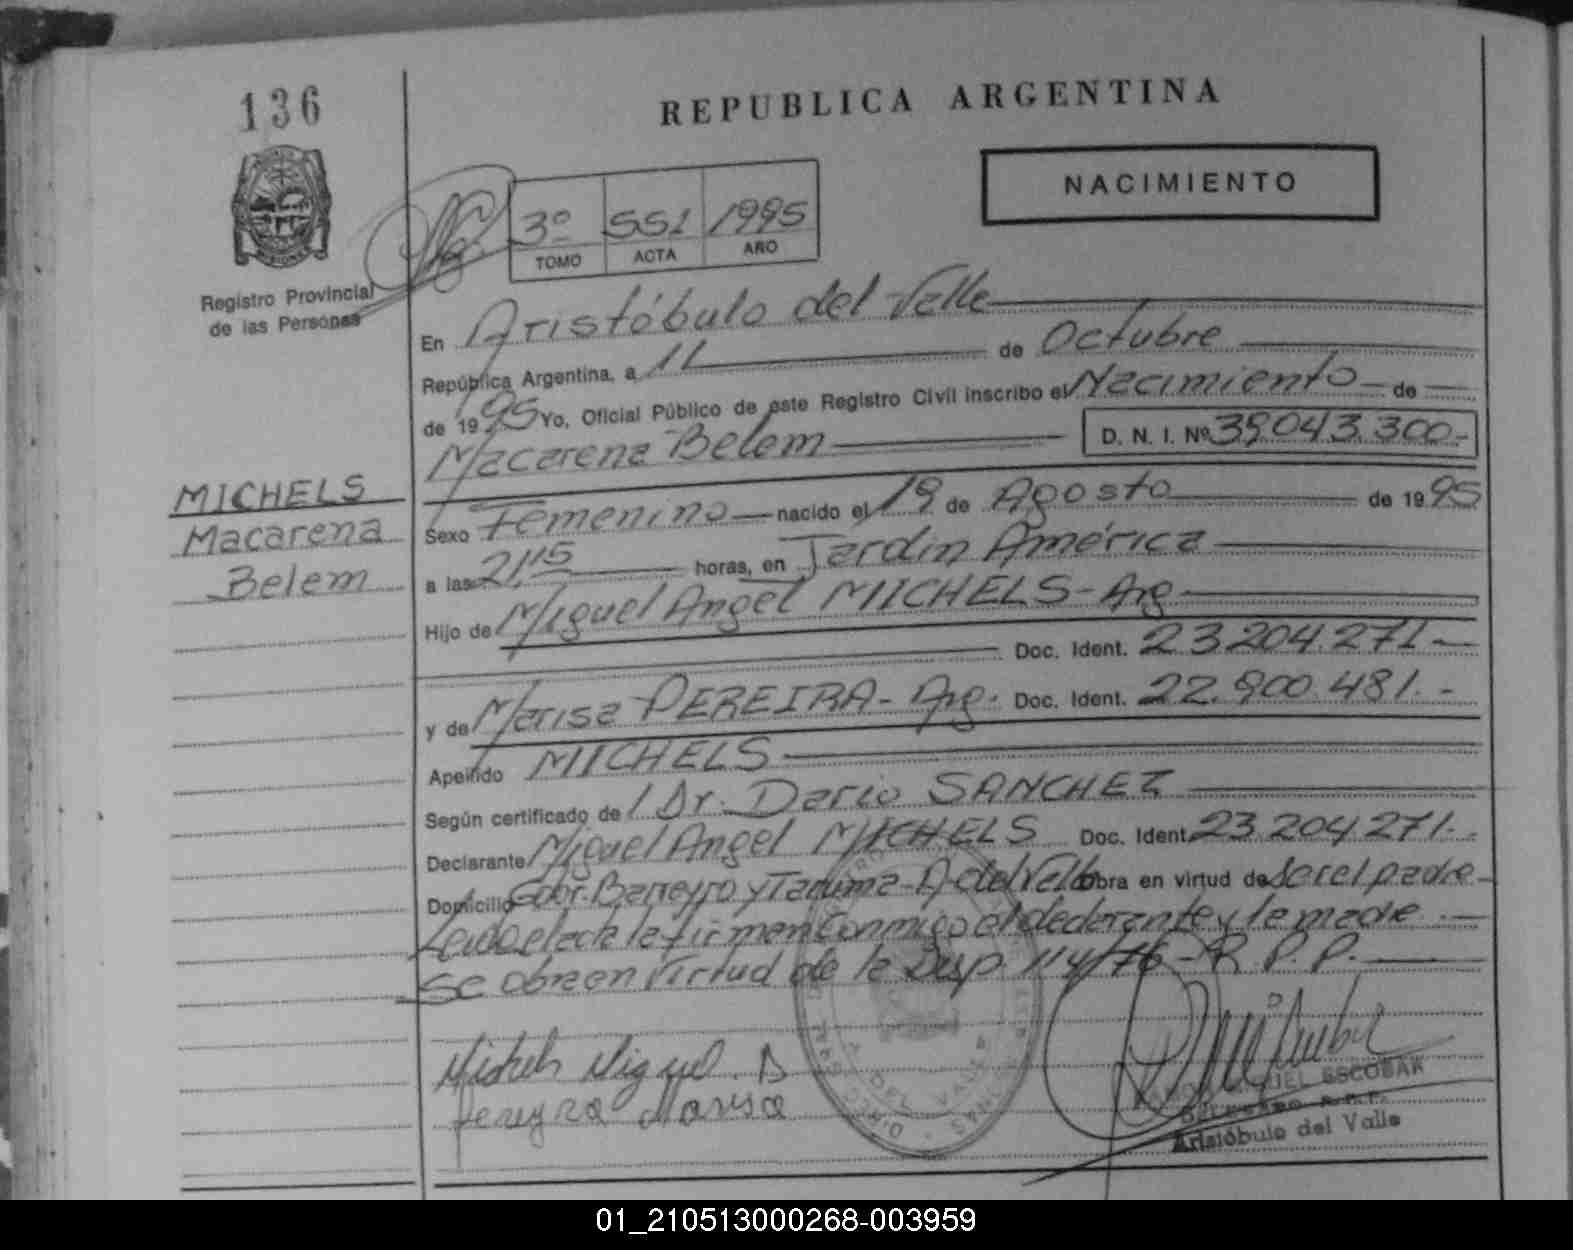 136
REPUBLICA ARGENTINA
NACIMIENTO
3º 551 1995
TOMO ACTA AÑO
Registro Provincial
de las Personas
En Aristóbulo del Valle
República Argentina, a 11 de Octubre
de 1995 Yo, Oficial Público de este Registro Civil inscribo el Nacimiento de
Macarena Belem D. N. I. Nº 39.043.300.-
MICHELS
Macarena
Belem
Sexo Femenino nacido el 19 de Agosto de 1995
a las 21,15 horas, en Jardín América
Hijo de Miguel Angel MICHELS - Arg
Doc. Ident. 23.204.271 -
y de Marisa PEREIRA - Arg. Doc. Ident. 22.900.481.-
Apellido MICHELS
Según certificado de Dr. Dario SANCHEZ
Declarante Miguel Angel MICHELS Doc. Ident. 23.204.271.-
Domicilio Gdor. Barreyro y Tacuma - A del Valle obra en virtud de ser el padre -
Leida el acta la firman conmigo el declarante y la madre
se obra en virtud de la Disp 114/76 - R.P.P.
Michels Miguel. A
Pereyra Marisa
DEL VALLE
MIGUEL ESCOBAR
DELEGADO
Aristóbulo del Valle
01_210513000268-003959